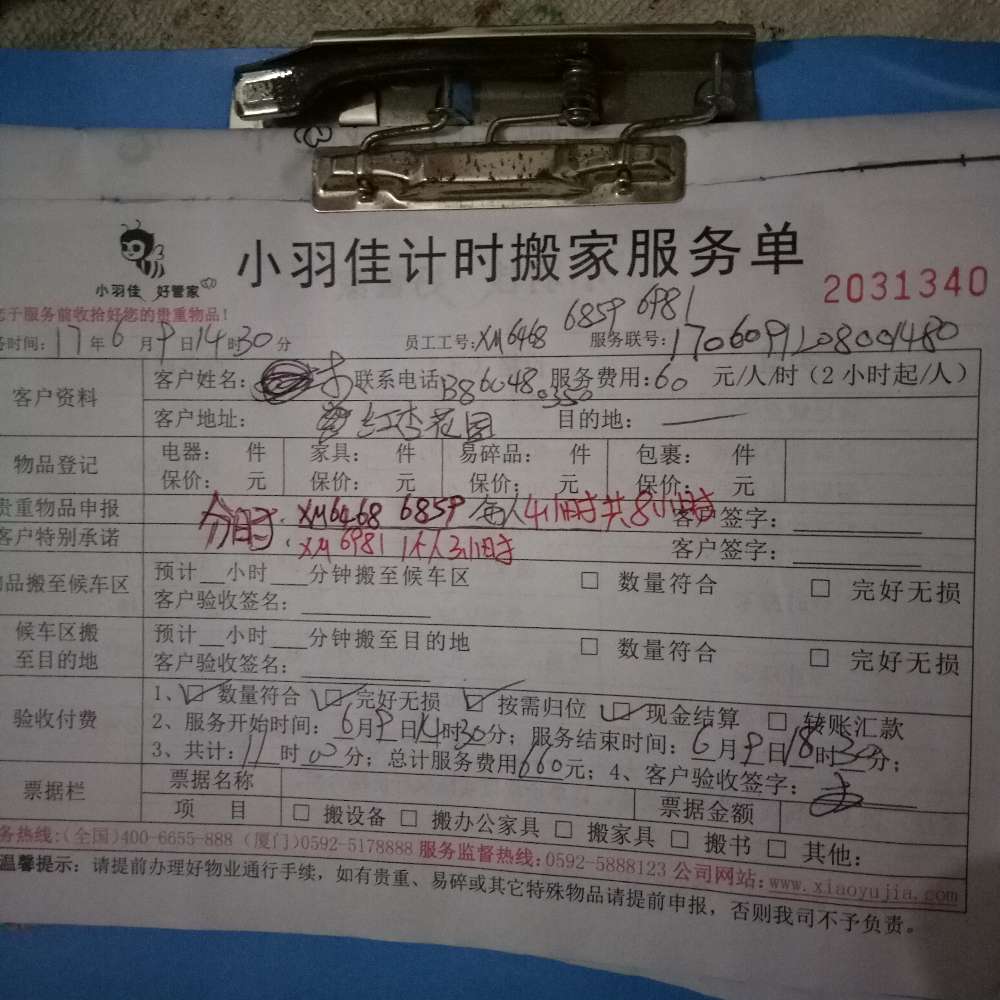 小羽佳 好管家
小羽佳计时搬家服务单
2031340
于服务前收拾好您的贵重物品!
6859 6981
务时间:17年6月9日14时30分 员工工号:XM6468 服务联号:1706091208001480
客户资料
客户姓名: 联系电话 服务费用:60 元/人/时(2小时起/人)
客户地址: 红杏花园 目的地:
物品登记
电器: 件 家具: 件 易碎品: 件 包裹: 件
保价: 元 保价: 元 保价: 元 保价: 元
贵重物品申报 分时:XM6468 6859 每人4小时共8小时 客户签字:
客户特别承诺 分时:XM6981 1个人3小时 客户签字:
物品搬至候车区
预计__小时___分钟搬至候车区 □ 数量符合 □ 完好无损
客户验收签名:
候车区搬至目的地
预计__小时___分钟搬至目的地 □ 数量符合 □ 完好无损
客户验收签名:
验收付费
1、☑数量符合 ☑完好无损 ☑按需归位 ☑现金结算 □ 转账汇款
2、服务开始时间:6月9日14时30分;服务结束时间:6月9日18时30分;
3、共计:11时00分;总计服务费用660元;4、客户验收签字:
票据栏
票据名称 票据金额
项 目 □ 搬设备 □ 搬办公家具 □ 搬家具 □ 搬书 □ 其他:
务热线:(全国)400-6655-888 (厦门)0592-5178888 服务监督热线:0592-5888123 公司网站:www.xiaoyujia.com
温馨提示:请提前办理好物业通行手续,如有贵重、易碎或其它特殊物品请提前申报,否则我司不予负责。